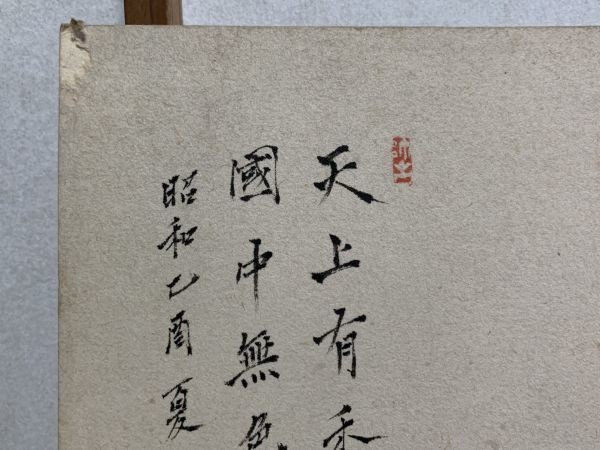 天上有香
國中無色
昭和乙酉夏